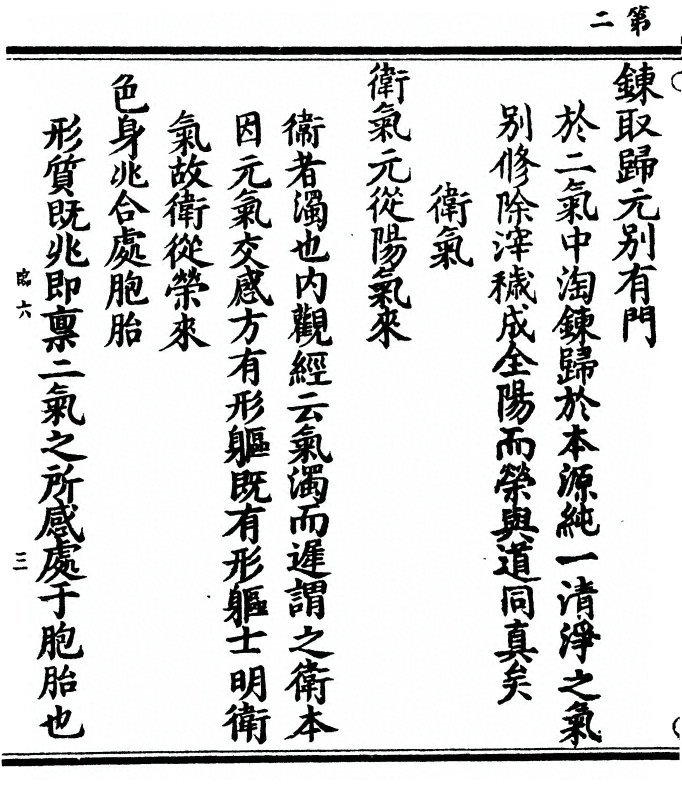 第二
鍊取歸元别有門
於二氣中淘鍊歸於本源純一清淨之氣
别修除滓穢成全陽而榮與道同真矣
衛氣
衛氣元從陽氣來
衛者濁也内觀經云氣濁而遲謂之衛本
因元氣交感方有形軀既有形軀士明衛
氣故衛從榮來
色身兆合處胞胎
形質既兆即禀二氣之所感處于胞胎也
臨六
三